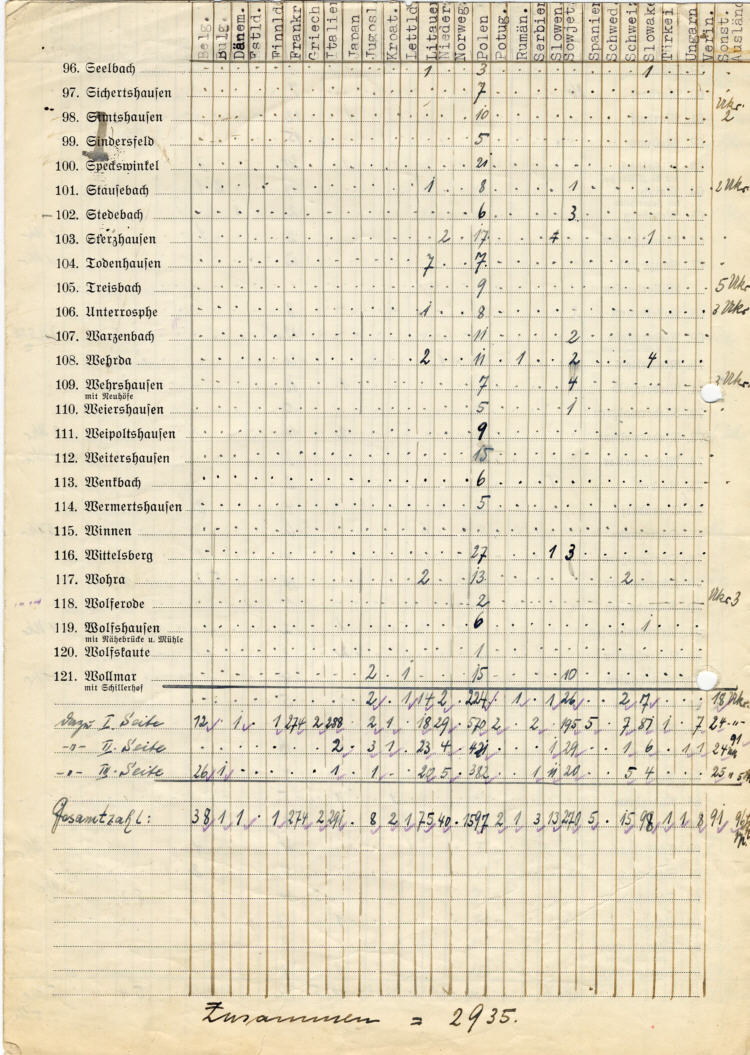 Belg. Bulg. Dänem. Estld. Finnld Frankr Griech Italien Japan Jugosl Kroat. Lettld Litauen Nieder Norweg. Polen Potug. Rumän. Serbien Slowen Sowjet. Spanien Schwed. Schweiz Slowake Türkei Ungarn Verin. Sonst. Ausländ
96. Seelbach 1 3 1
97. Sichertshausen 7
98. Simtshausen 10 Ukr. 2
99. Sindersfeld 5
100. Speckswinkel 21
101. Stausebach 1 8 1 2 Ukr.
102. Stedebach 6 3
103. Sterzhausen 2 17 4 1
104. Todenhausen 7 7
105. Treisbach 9 5 Ukr
106. Unterrosphe 1 8 3 Ukr
107. Warzenbach 11 2
108. Wehrda 2 11 1 2 4
109. Wehrshausen 7 4 3 Ukr.
mit Neuhöfe
110. Weiershausen 5 1
111. Weipoltshausen 9
112. Weitershausen 15
113. Wenkbach 6
114. Wermertshausen 5
115. Winnen
116. Wittelsberg 27 1 3
117. Wohra 2 13 2
118. Wolferode 2 Ukr 3
119. Wolfshausen 6 1
mit Nähebrücke u. Mühle
120. Wolfskaute 1
121. Wollmar 2 1 15 10
mit Schillerhof
2 1 14 2 224 1 1 26 2 7 18 Ukr.
dazu I. Seite 12 1 1 274 2 288 2 1 18 29 570 2 2 195 5 7 81 1 7 24 -"-
-"- II. Seite 2 3 1 23 4 421 1 29 1 6 1 1 24
-"- III. Seite 26 1 1 1 20 5 382 1 11 20 5 4 25 "
Gesamtzahl: 38 1 1 1 274 2 291 8 2 1 75 40 1597 2 1 3 13 270 5 15 98 1 1 8 91
Zusammen = 2935.